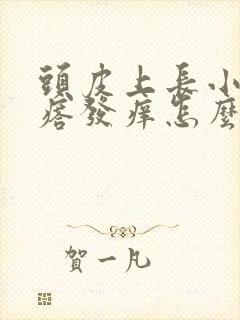 頭皮上長小
痞發痒怎麼
賀一凡